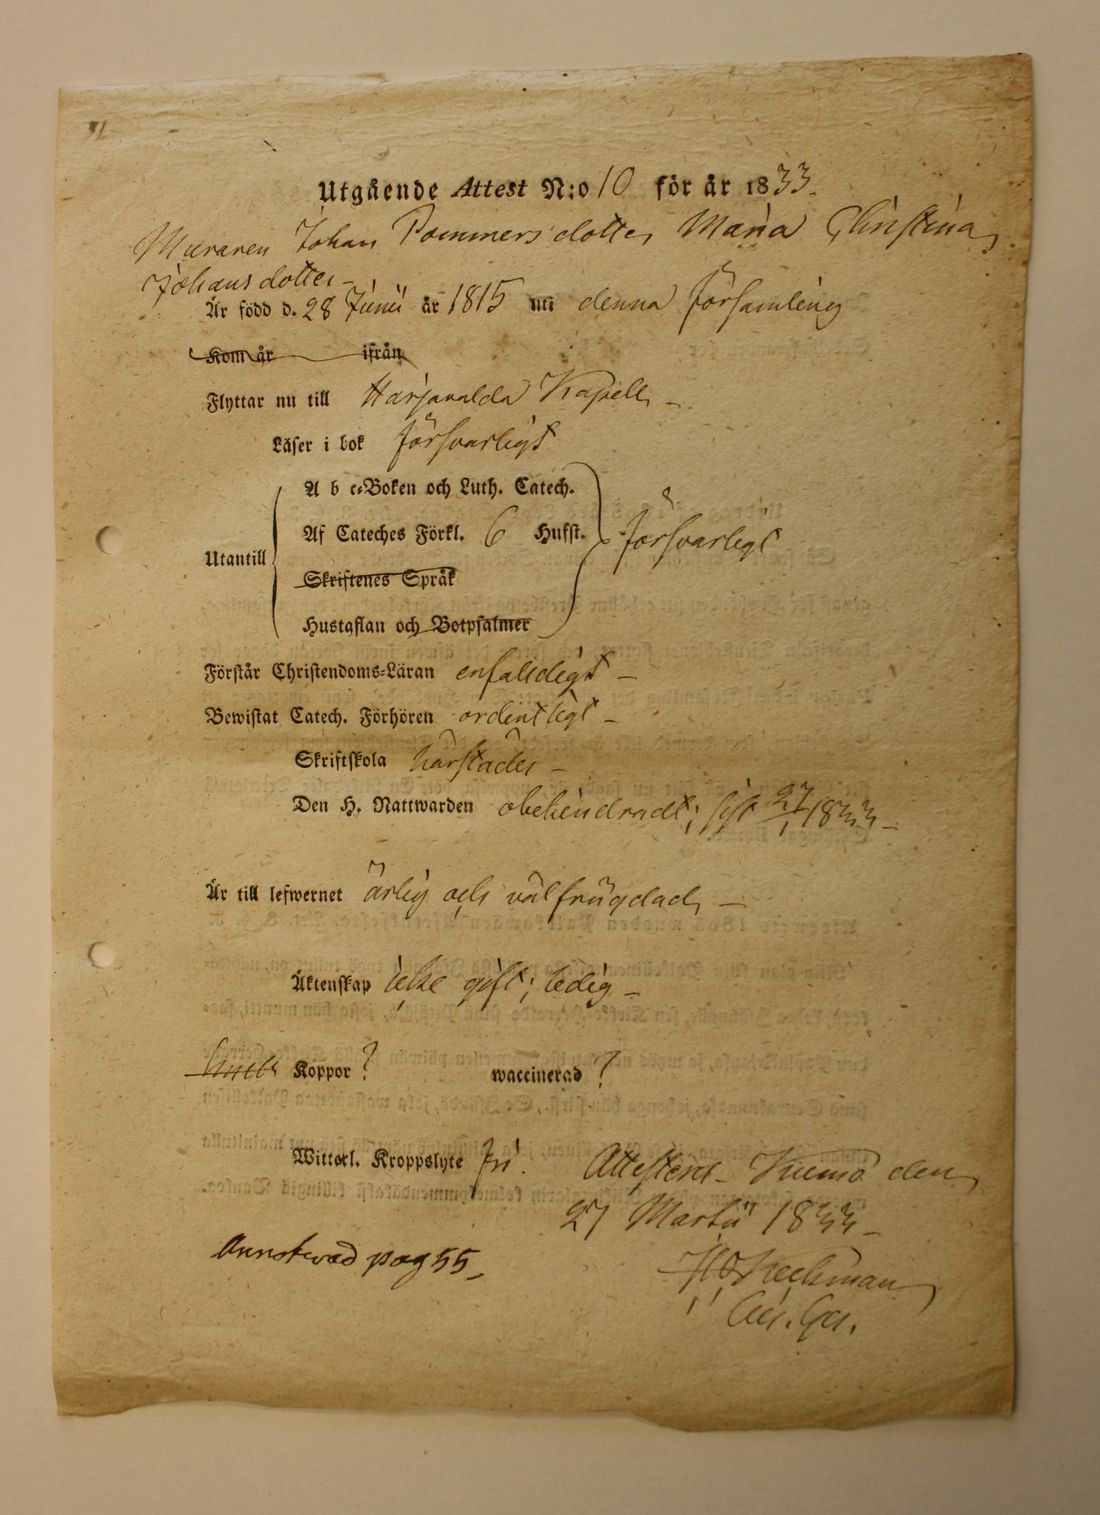 Utgående Attest N:o 10 för år 1833.
Muraren Johan Pommers dotter Maria Christina
Johansdotter
Är född d. 28 Junii år 1815 uti denna församling
Kom år ifrån
Flyttar nu till Harjavalda Kapell
Läser i bok försvarligt
A b c-Boken och Luth. Catech.
Af Cateches Förkl. 6 Hufst. försvarligt
Utantill
Skriftenes Språk
Hustaflan och Botpsalmer
Förstår Christendoms-Läran enfaldigt
Bewistat Catech. Förhören ordentligt
Skriftskola härstädes
Den H. Nattwarden obehindradt, sist 27/1 1833
Är till lefwernet ärlig och välfrägdad
Äktenskap icke gift, ledig
Koppor ? waccinerad ?
Witterl. Kroppslyte fri. Attesterar Kumo den
27 Martii 1833
pag 55